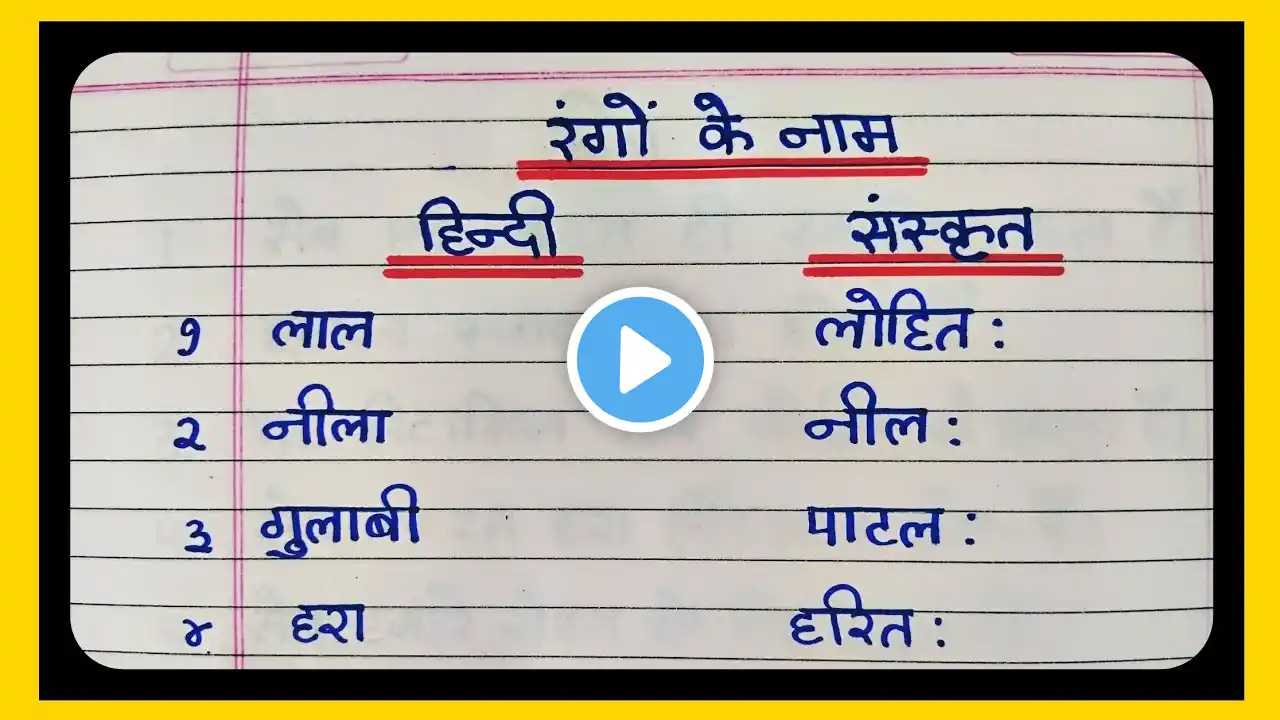 रंगों के नाम
हिन्दी संस्कृत
१ लाल लोहित :
२ नीला नील :
३ गुलाबी पाटल :
४ हरा हरित :